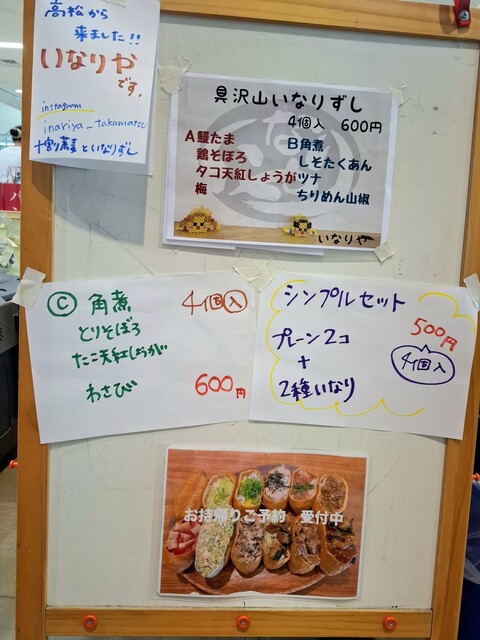 高松から
来ました!!
いなりや
です。
instagram
inariya_takamatsu
十割蕎麦といなりずし
具沢山いなりずし
4個入 600円
A鰻たま
鶏そぼろ
タコ天紅しょうが
梅
B角煮
しそたくあん
ツナ
ちりめん山椒
いなりや
Ⓒ 角煮 4個入
とりそぼろ
たこ天紅しょうが
わさび
600円
シンプルセット
500円
プレーン2コ
+
2種いなり
4個入
お持帰りご予約 受付中